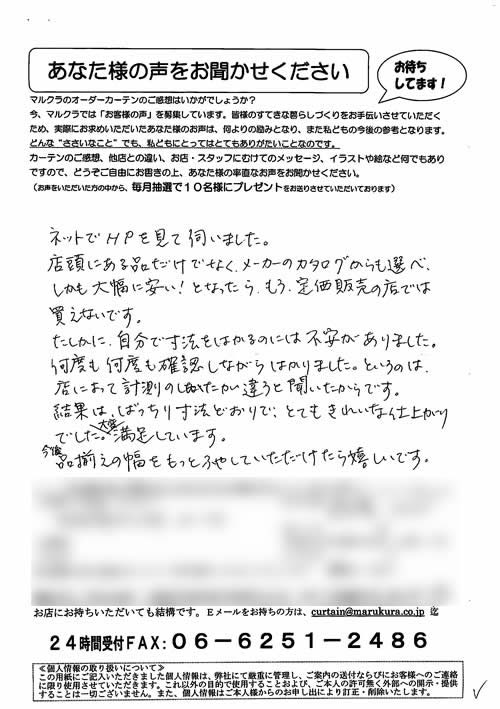 あなた様の声をお聞かせください
お待ち
してます!
マルクラのオーダーカーテンのご感想はいかがでしょうか?
今、マルクラでは「お客様の声」を募集しています。皆様のすてきな暮らしづくりをお手伝いさせていただく
ため、実際にお求めいただいたあなた様のお声は、何よりの励みとなり、また私どもの今後の参考となります。
どんな“ささいなこと”でも、私どもにとってはとてもありがたいことなのです。
カーテンのご感想、他店との違い、お店・スタッフにむけてのメッセージ、イラストや絵など何でもあり
ですので、どうぞご自由にお書きの上、あなた様の率直なお声をお聞かせください。
(お声をいただいた方の中から、毎月抽選で10名様にプレゼントをお送りさせていただいております)
ネットでHPを見て伺いました。
店頭にある品だけでなく、メーカーのカタログからも選べ、
しかも大幅に安い!となったら、もう、定価販売の店では
買えないです。
たしかに、自分で寸法をはかるのには不安がありました。
何度も何度も確認しながらはかりました。というのは、
店によって計測のしかたが違うと聞いたからです。
結果は、ばっちり寸法どおりで、とてもきれいな仕上がり
でした。大変満足しています。
今後品揃えの幅をもっとふやしていただけたら嬉しいです。
お店にお持ちいただいても結構です。Eメールをお持ちの方は、curtain@marukura.co.jp 迄
24時間受付FAX:06-6251-2486
≪個人情報の取り扱いについて≫
この用紙にご記入いただきました個人情報は、弊社にて厳重に管理し、ご案内の送付ならびにお客様へのご連絡
に限り使用させていただきます。これ以外の目的で使用することおよび、ご本人の許可無く外部への開示・提供
することは一切ございません。また、個人情報はご本人様からのお申し出により訂正・削除いたします。